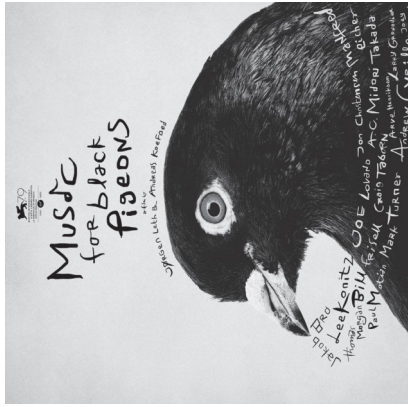 79
Music
for black
Pigeons
a film by
Jørgen Leth & Andreas Koefoed
Jakob Bro
Lee Konitz
Thomas
Morgan
Bill Frisell
Paul Motian
Mark Turner
Joe Lovano
Craig Taborn
Jon Christensen
Manfred
Eicher
A-C
Midori Takada
Arve Henriksen
Larry Grenadier
Andrew Cyrille